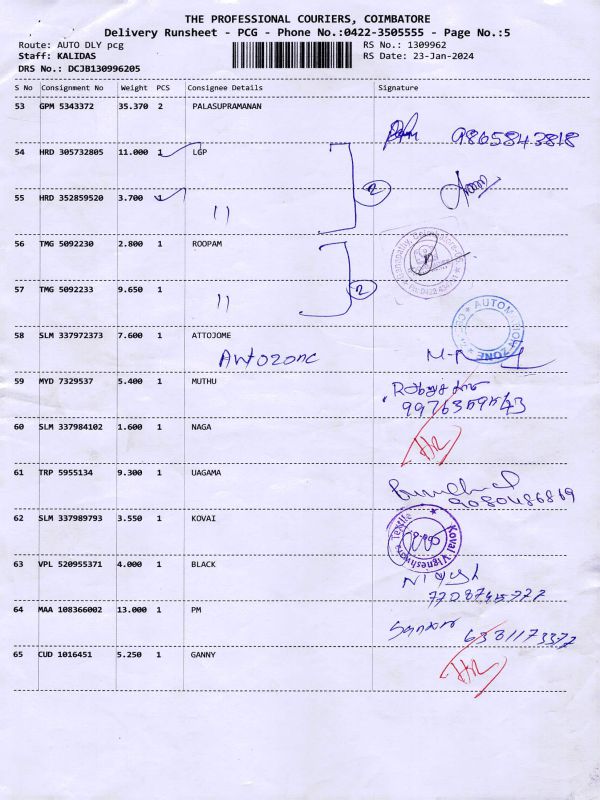 THE PROFESSIONAL COURIERS, COIMBATORE
Delivery Runsheet - PCG - Phone No.:0422-3505555 - Page No.:5
Route: AUTO DLY pcg RS No.: 1309962
Staff: KALIDAS RS Date: 23-Jan-2024
DRS No.: DCJB130996205
S No Consignment No Weight PCS Consignee Details Signature
53 GPM 5343372 35.370 2 PALASUPRAMANAN
9865843818
54 HRD 305732805 11.000 1 LGP
55 HRD 352859520 3.700 1
2
56 TMG 5092230 2.800 1 ROOPAM
57 TMG 5092233 9.650 1
2
AUTOMATION ZONE
58 SLM 337972373 7.600 1 ATTOJOME
Autozone
59 MYD 7329537 5.400 1 MUTHU
60 SLM 337984102 1.600 1 NAGA
61 TRP 5955134 9.300 1 UAGAMA
9080486869
62 SLM 337989793 3.550 1 KOVAI
Kovai Vigneshwara Texetile
63 VPL 520955371 4.000 1 BLACK
64 MAA 108366002 13.000 1 PM
6381173372
65 CUD 1016451 5.250 1 GANNY